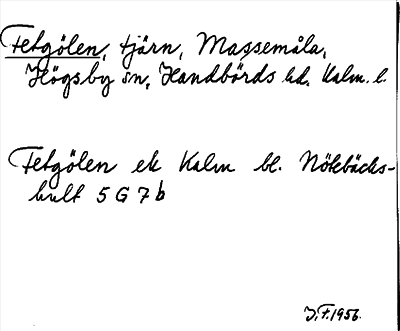 Fetgölen, tjärn, Massemåla,
Högsby sn, Handbörds hd. Kalm. l.
Fetgölen ek Kalm bl. Nötebäcks-
hult 5 G 7 b
J.F. 1956.